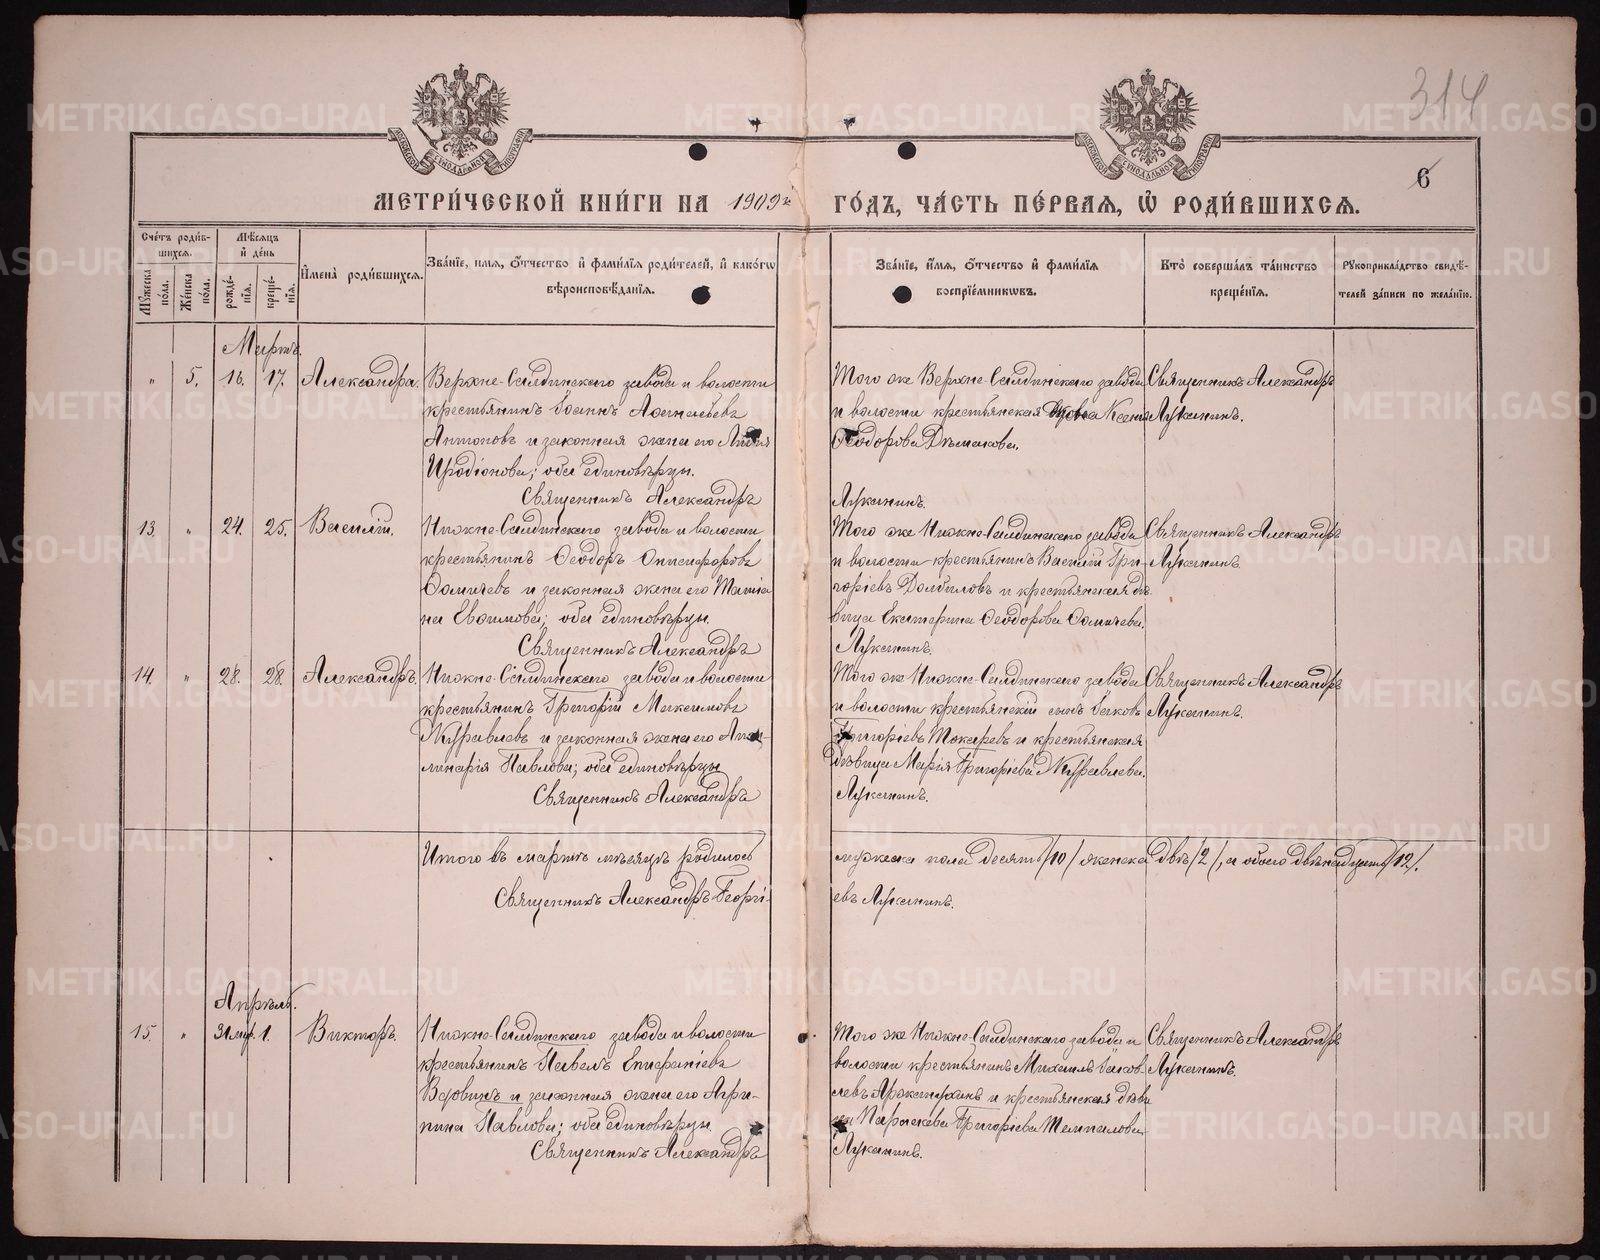 314
6
МЕТРИ́ЧЕСКОЙ КНИ́ГИ НА 1909й ГО́ДЪ, ЧА́СТЬ ПЕ́РВАЯ, Ѡ҆ РОДИ́ВШИХСѦ.
Сче́тъ роди́в-
шихся.
Мꙋ́жеска по́ла.
Же́нска по́ла.
Мѣ́сяцъ
и҆ де́нь
рожде́-
нїѧ.
креще́-
нїѧ.
И҆мена̀ роди́вшихся.
Зва́нїе, и҆мя, ѻ҆́тчество и҆ фами́лїѧ роди́телей, и҆ како́гѡ
вѣроисповѣ́данїѧ.
Зва́нїе, и҆́мя, ѻ҆́тчество и҆ фами́лїѧ
воспрїе́мникѡвъ.
Кто̀ соверша́лъ та́инство
креще́нїѧ.
Рꙋкоприкла́дство свидѣ́-
телей за́писи по жела́нїю.
Мартъ.
" 5. 16. 17. Александра.
Верхне-Салдинскаго завода и волости
крестьянинъ Іоаннъ Леонтьевъ
Антоновъ и законная жена его Лидія
Иродіонова; оба единовѣрцы.
Священникъ Александръ
Того же Верхне-Салдинскаго завода
и волости крестьянская вдова Ксенія
Ѳеодорова Дѣмакова.
Лукинъ.
Священникъ Александръ
Лукинъ.
13. " 24. 25. Василій.
Нижне-Салдинскаго завода и волости
крестьянинъ Ѳеодоръ Онисифоровъ
Ѳомичевъ и законная жена его Татіа
на Евѳимова; оба единовѣрцы.
Священникъ Александръ
Того же Нижне-Салдинскаго завода
и волости крестьянинъ Василій Гри-
горіевъ Долбиловъ и крестьянская дѣ
вица Екатерина Ѳеодорова Ѳомичева.
Лукинъ.
Священникъ Александръ
Лукинъ.
14. " 28. 28. Александръ.
Нижне-Салдинскаго завода и волости
крестьянинъ Григорій Максимовъ
Журавлевъ и законная жена его Апол-
линарія Павлова; оба единовѣрцы
Священникъ Александръ
Того же Нижне-Салдинскаго завода
и волости крестьянскій сынъ Іаковъ
Григоріевъ Токаревъ и крестьянская
дѣвица Марія Григоріева Журавлева.
Лукинъ.
Священникъ Александръ
Лукинъ.
Итого въ мартѣ мѣсяцѣ родилось мужеска пола десять /10/ женска двѣ /2/, а обоего двѣнадцать /12/.
Священникъ Александръ Георгі-
евъ Лукинъ.
Апрѣль.
15. " 31 мар. 1. Викторъ.
Нижне-Салдинскаго завода и волости
крестьянинъ Павелъ Епифаніевъ
Вдовинъ и законная жена его Агри-
пина Павлова; оба единовѣрцы
Священникъ Александръ
Того же Нижне-Салдинскаго завода и
волости крестьянинъ Михаилъ Іаков-
левъ и крестьянская дѣви
ца Параскева Григоріева
Лукинъ.
Священникъ Александръ
Лукинъ.
METRIKI.GASO-URAL.RU